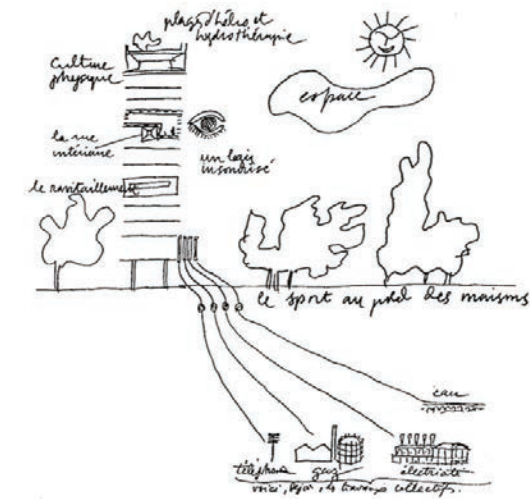 plage d'hélio et
hydrothérapie
culture
physique
espace
la rue
intérieure
un logis
insonorisé
le ravitaillement
le sport au pied des maisons
eau
téléphone gaz électricité
voici, les travaux collectifs.